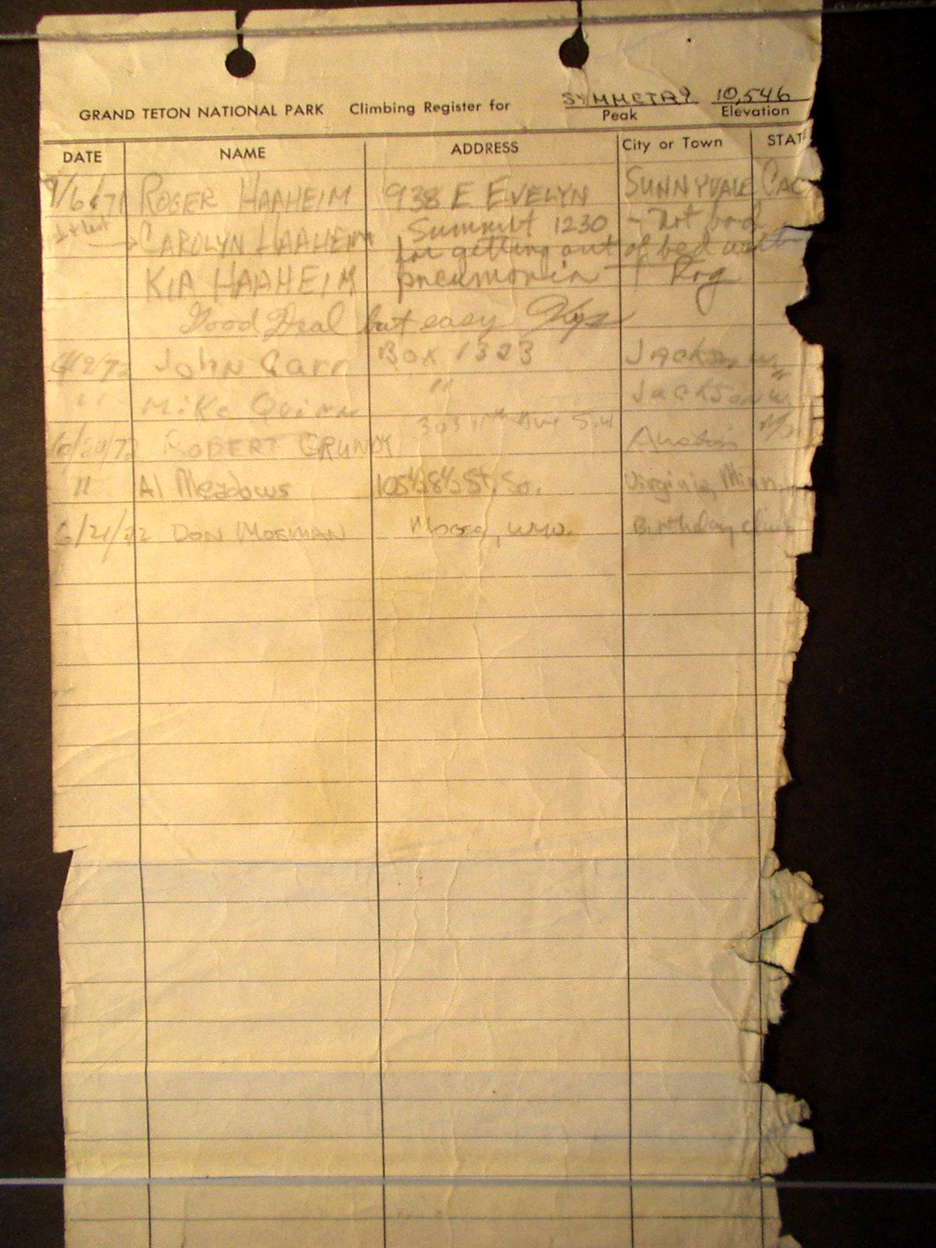 GRAND TETON NATIONAL PARK Climbing Register for SYMMETRY 10,546
Peak Elevation
DATE NAME ADDRESS City or Town STATE
9/6/71 ROGER HAAHEIM 938 E EVELYN SUNNYVALE CAL
CAROLYN HAAHEIM Summit 1230 - not bad
KIA HAAHEIM for getting out of bed with
pneumonia Rog
Good Deal but easy
John Carr Box 1323 Jackson
" Mike Quinn " Jackson
6/20/72 ROBERT GRUNDY 303 11th Ave S.W. Austin
" Al Meadows 105½ 8½ St. So. Virginia, Minn.
6/21/72 DON MOSMAN Moose, Wyo. Birthday climb